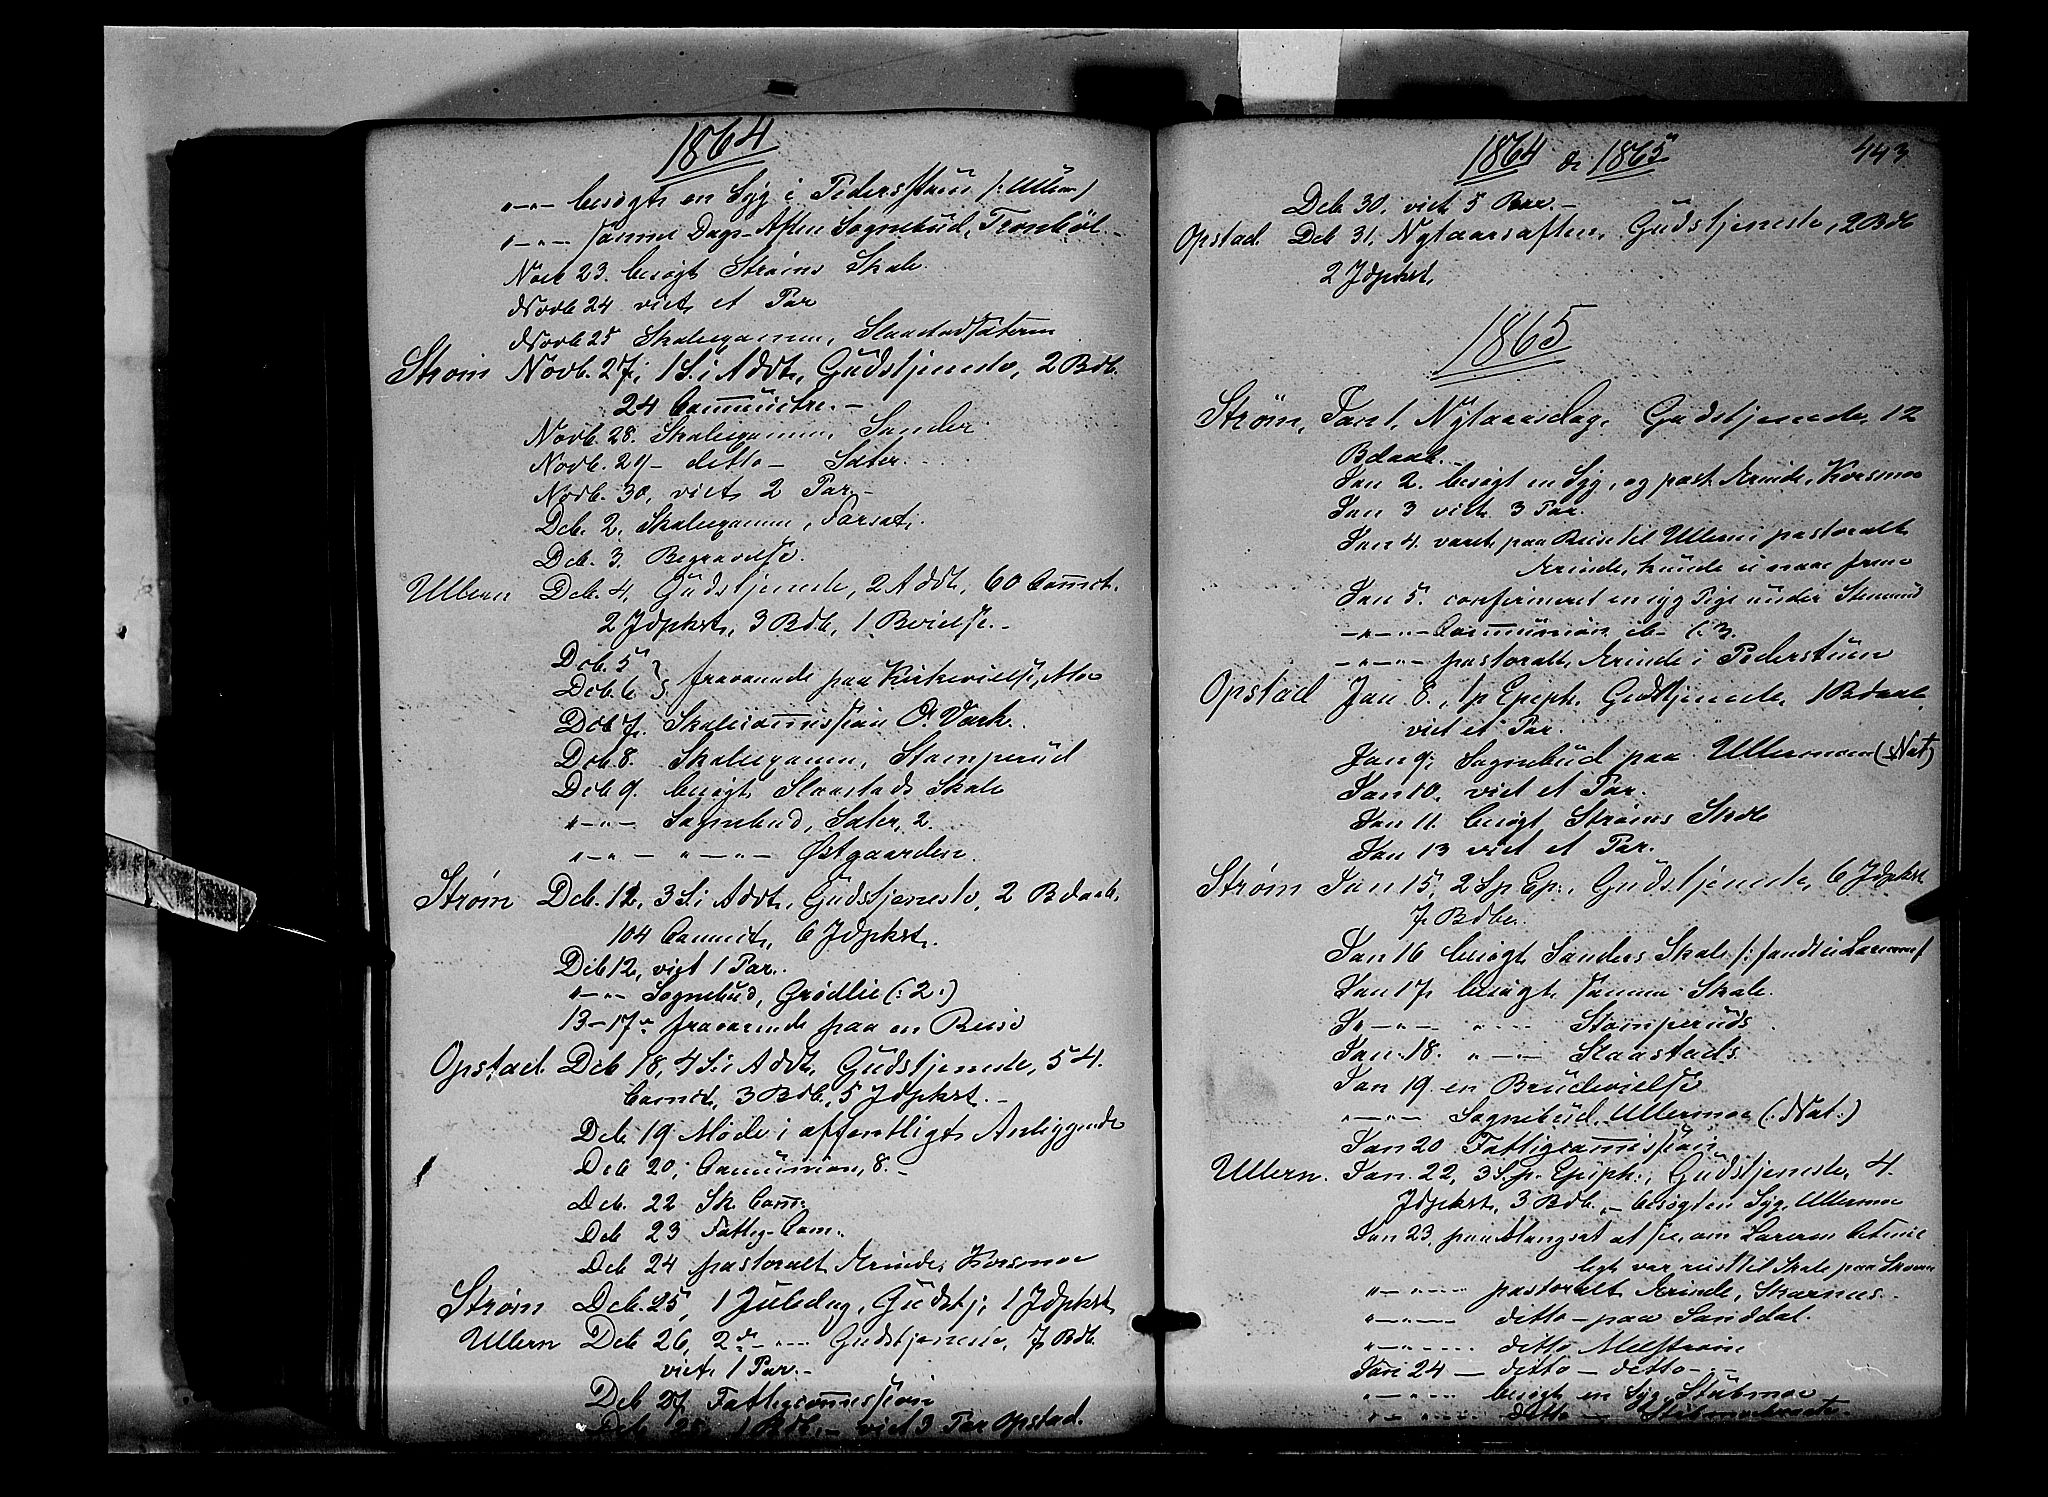 1864
"–"– besøgt en Syg i Pedersstuen /: Ullern /
"–"– samme Dags Aften Sognebud, Tronbøl.–
Nov 23. besøgt Strøms Skole.
Novb 24 viet et Par
Novb 25 Skoleexamen, Slaastadsæteren
Strøm Novb. 27, 1 S. i Advt, Gudstjeneste, 2 Bdb.
24 Communictre. –
Novb. 28. Skoleexamen, Sander
Novb. 29 – ditto – Sæter.
Novb. 30, viet 2 Par. –
Dcb. 2, Skoleexamen, Farset.
Dcb. 3. Begravelse.
Ullern Dcb. 4, Gudstjeneste, 2 Advt, 60 Comct.
2 Jdpkst, 3 Bdb, 1 Vielse. –
Dcb. 5
Dcb. 6 fraværende paa Kirkevielse, Moe
Dcb 7. Skolecommission
Dcb 8. Skoleexamen, Stomperud
Dcb 9. besøgt Slaastads Skole
"–"– Sognebud, Sæter, 2.
"–"– "–"– Østgaarden.
Strøm Dcb. 12, 3 S. i Advt, Gudstjeneste, 2 Bdaab,
104 Comct, 6 Jdpkst.
Dcb 12, viet 1 Par.
"–"– Sognebud, Grødlie (: 2 :)
13–17de fraværende paa en Reise
Opstad Dcb 18, 4 S. i Advt, Gudstjeneste, 54
Comct, 3 Bdb, 5 Jdpkst. –
Dcb 19 Møde i offentligt Anliggende
Dcb 20, Communion, 8. –
Dcb. 22 Sk. Com.
Dcb 23 Fattig-Com.
Dcb 24 pastoralt Ærinde, Korsmoe
Strøm Dcb. 25, 1 Juledag, Gudstj, 1 Jdpkst
Ullern Dcb 26, 2den –"– Gudstjeneste, 7 Bdb.
viet 1 Par. –
Dcb 27 Fattigcommission
Dcb 28, 1 Bdb, – viet 3 Par Opstad.
1864 & 1865
443
Dcb 30. viet 5 Par. –
Opstad Dcb 31, Nytaarsaften, Gudstjeneste, 2 Bdb
2 Jdpkst,
1865
Strøm, Jan 1, Nytaarsdag, Gudstjeneste, 12
Bdaab. –
Jan 2. besøgt en Syg, og past Ærinde, Korsmoe
Jan 3 viet 3 Par.
Jan 4. været paa Reise til Ullern i pastoralt
Ærinde, kunde ei naae frem
Jan 5. confirmeret en syg Pige under Stensrud
–"–"– Communion ib– (: 3.
–"–"– pastoralt Ærinde i Pederstuen
Opstad Jan 8., 1 p Epiph. Gudstjeneste, 1 Bdaab,
viet et Par.
Jan 9, Sognebud paa Ullernmoen (Nat)
Jan 10, viet et Par.
Jan 11. besøgt Strøms Skole
Jan 13 viet et Par.
Strøm Jan 15, 2 Sp Ep:, Gudstjeneste, 6 Jdpkst
7 Bdbe.
Jan 16 besøgt Sanders Skole
Jan 17, besøgt samme Skole.
"–"– "–"– Stomperuds
Jan. 18. "–"– Slaastads
Jan 19 en Brudevielse
"–"– Sognebud, Ullermoe (: Nat :)
Jan 20 Fattigcommission
Ullern. Jan. 22, 3 Sp. Epiph:, Gudstjeneste, 4
Jdpkst, 3 Bdb. – besøgt en Syg, Ullermoe
Jan 23, paa Mangset at see, om Læreren
ligt var reist til Skole paa
"–"– pastoralt Ærinde, Skarnes.
"–"– ditto – paa Sanddal.
"–"– ditto Melstrøm
Jan 24 – ditto – ditto –
"–"– besøgt en Syg, Stubmoe
"–"– ditto –